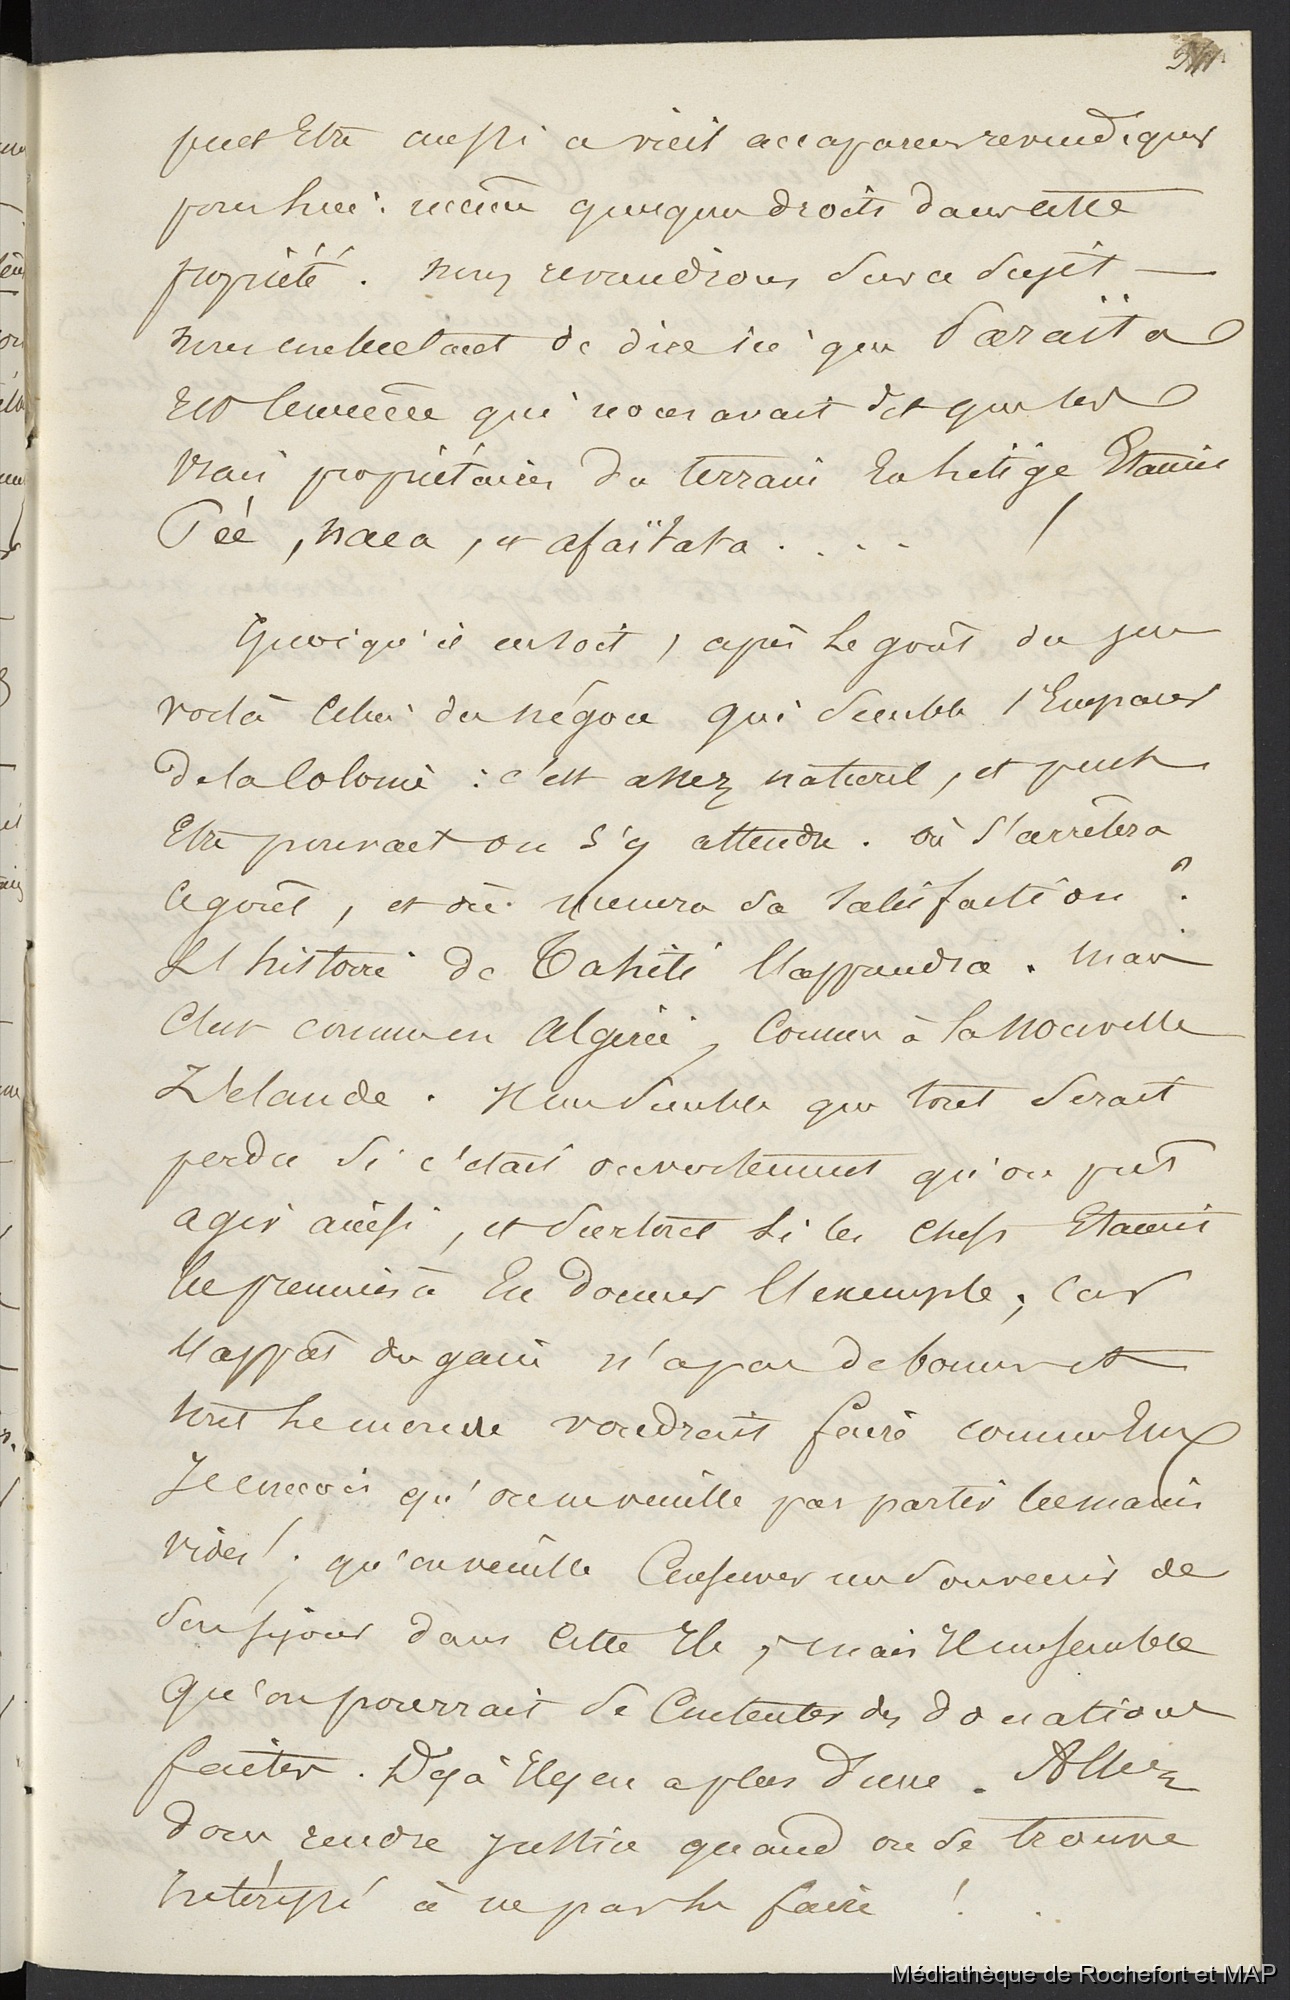 peut Etre aussi ce vieil accapareur revendiquer
pour lui même quelques droits dans cette
propriété. nous reviendrons sur ce sujet —
nous contentant de dire ici que Paraïta
Est le même qui nous avait dit que les
vrais propriétaires du terrain Etaient
Péé, naea, et afaïtata . . . .
Quoiqu'il en soit, après le goût du jeu
voilà celui du négoce qui semble s'Emparer
de la Colonie : c'est assez naturel, et peut
Etre pouvait on s'y attendre. où s'arrêtera
ce goût, et où menera sa satisfaction ?
L'histoire de Tahiti l'apprendra. Mais
c'est comme en Algérie, comme à la nouvelle
Zélande. Il me semble que tout serait
perdu si c'était ouvertement qu'on pût
agir ainsi, et surtout si les chefs Etaient
les premiers à En donner l'exemple ; car
l'appât du gain n'a pas de bornes et
tout le monde voudrait faire comme Eux
Je conçois qu'on ne veuille pas partir les mains
vides ! ; qu'on veuille Conserver un souvenir de
son séjour dans cette Ile, mais Il me semble
qu'on pourrait se Contenter des donations
faites. Déjà Il y en a plus d'une. Allez
donc rendre justice quand on se trouve
Intéressé à ne pas le faire !
Médiathèque de Rochefort et MAP